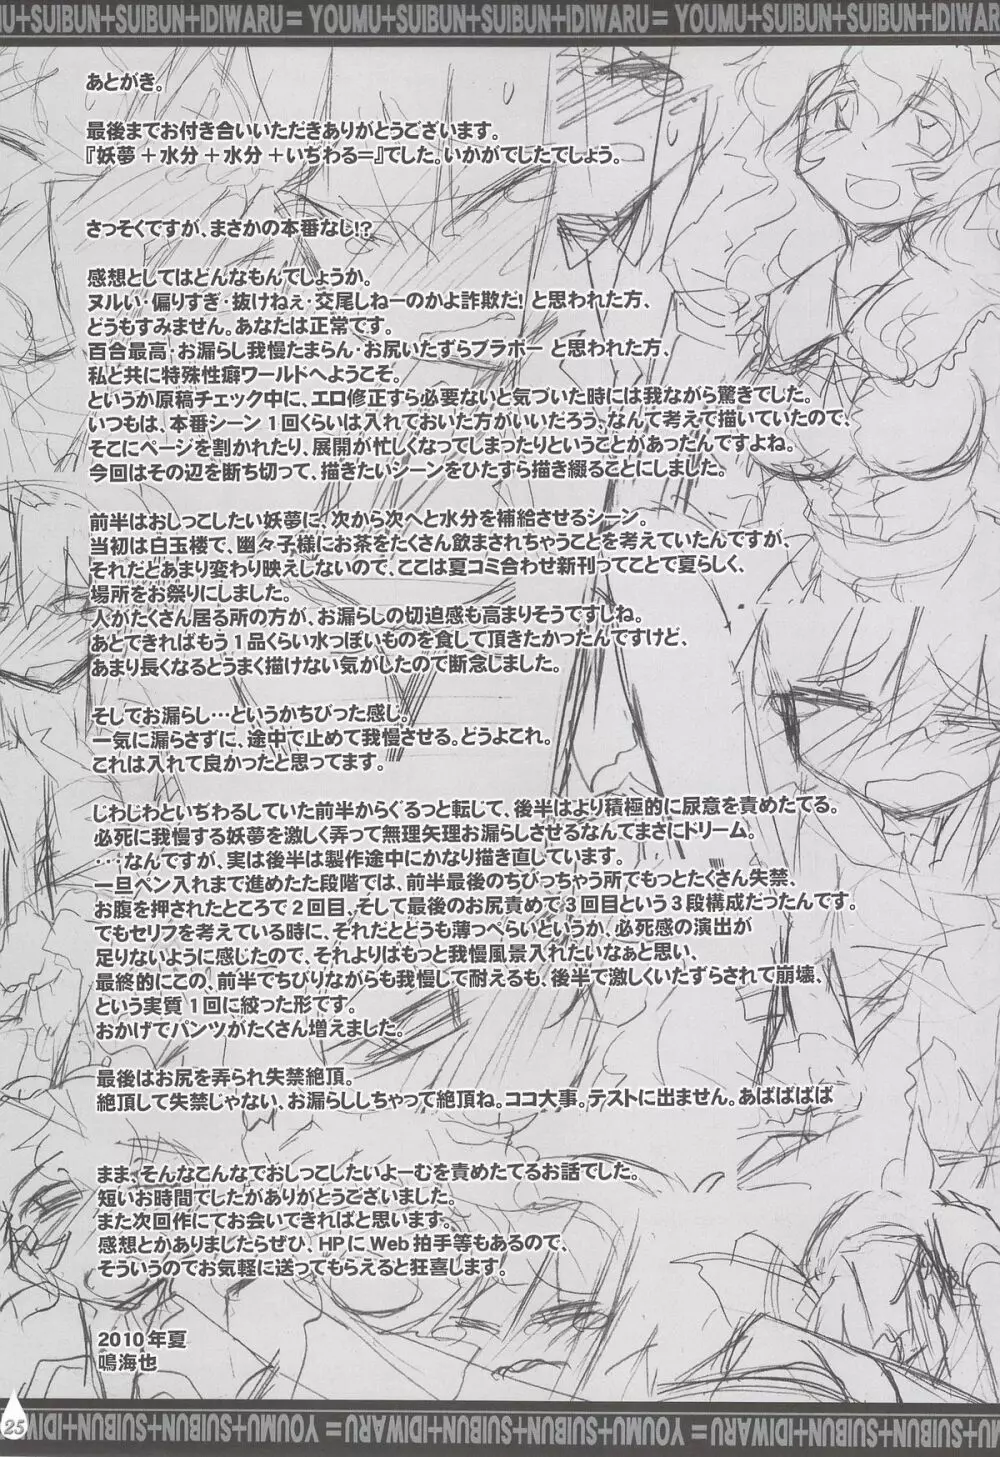 MU+SUIBUN+SUIBUN+IDIWARU= YOUMU+SUIBUN+SUIBUN+IDIWARU= YOUMU+SUIBUN+SUIBUN+IDIWARU
あとがき。
最後までお付き合いいただきありがとうございます。
『妖夢＋水分＋水分＋いぢわる＝』でした。いかがでしたでしょう。
さっそくですが、まさかの本番なし!?
感想としてはどんなもんでしょうか。
ヌルい・偏りすぎ・抜けねぇ・交尾しねーのかよ詐欺だ！と思われた方、
どうもすみません。あなたは正常です。
百合最高・お漏らし我慢たまらん・お尻いたずらブラボー と思われた方、
私と共に特殊性癖ワールドへようこそ。
というか原稿チェック中に、エロ修正すら必要ないと気づいた時には我ながら驚きでした。
いつもは、本番シーン１回くらいは入れておいた方がいいだろう、なんて考えで描いていたので、
そこにページを割かれたり、展開が忙しくなってしまったりということがあったんですよね。
今回はその辺を断ち切って、描きたいシーンをひたすら描き綴ることにしました。
前半はおしっこしたい妖夢に、次から次へと水分を補給させるシーン。
当初は白玉楼で、幽々子様にお茶をたくさん飲まされちゃうことを考えていたんですが、
それだとあまり変わり映えしないので、ここは夏コミ合わせ新刊ってことで夏らしく、
場所をお祭りにしました。
人がたくさん居る所の方が、お漏らしの切迫感も高まりそうですしね。
あとできればもう１品くらい水っぽいものを食して頂きたかったんですけど、
あまり長くなるとうまく描けない気がしたので断念しました。
そしてお漏らし…というかちびった感じ。
一気に漏らさずに、途中で止めて我慢させる。どうよこれ。
これは入れて良かったと思ってます。
じわじわといぢわるしていた前半からぐるっと転じて、後半はより積極的に尿意を責めたてる。
必死に我慢する妖夢を激しく弄って無理矢理お漏らしさせるなんてまさにドリーム。
…なんですが、実は後半は製作途中にかなり描き直しています。
一旦ペン入れまで進めたた段階では、前半最後のちびっちゃう所でもっとたくさん失禁、
お腹を押されたところで２回目、そして最後のお尻責めで３回目という３段構成だったんです。
でもセリフを考えている時に、それだとどうも薄っぺらいというか、必死感の演出が
足りないように感じたので、それよりはもっと我慢風景入れたいなぁと思い、
最終的にこの、前半でちびりながらも我慢して耐えるも、後半で激しくいたずらされて崩壊、
という実質１回に絞った形です。
おかげでパンツがたくさん増えました。
最後はお尻を弄られ失禁絶頂。
絶頂して失禁じゃない、お漏らししちゃって絶頂ね。ココ大事。テストに出ません。あばばばば
まま、そんなこんなでおしっこしたいよーむを責めたてるお話でした。
短いお時間でしたがありがとうございました。
また次回作にてお会いできればと思います。
感想とかありましたらぜひ、HPにWeb拍手等もあるので、
そういうのでお気軽に送ってもらえると狂喜します。
2010年夏
鳴海也
25
MU+SUIBUN+SUIBUN+IDIWARU= YOUMU+SUIBUN+SUIBUN+IDIWARU= YOUMU+SUIBUN+SUIBUN+IDIW